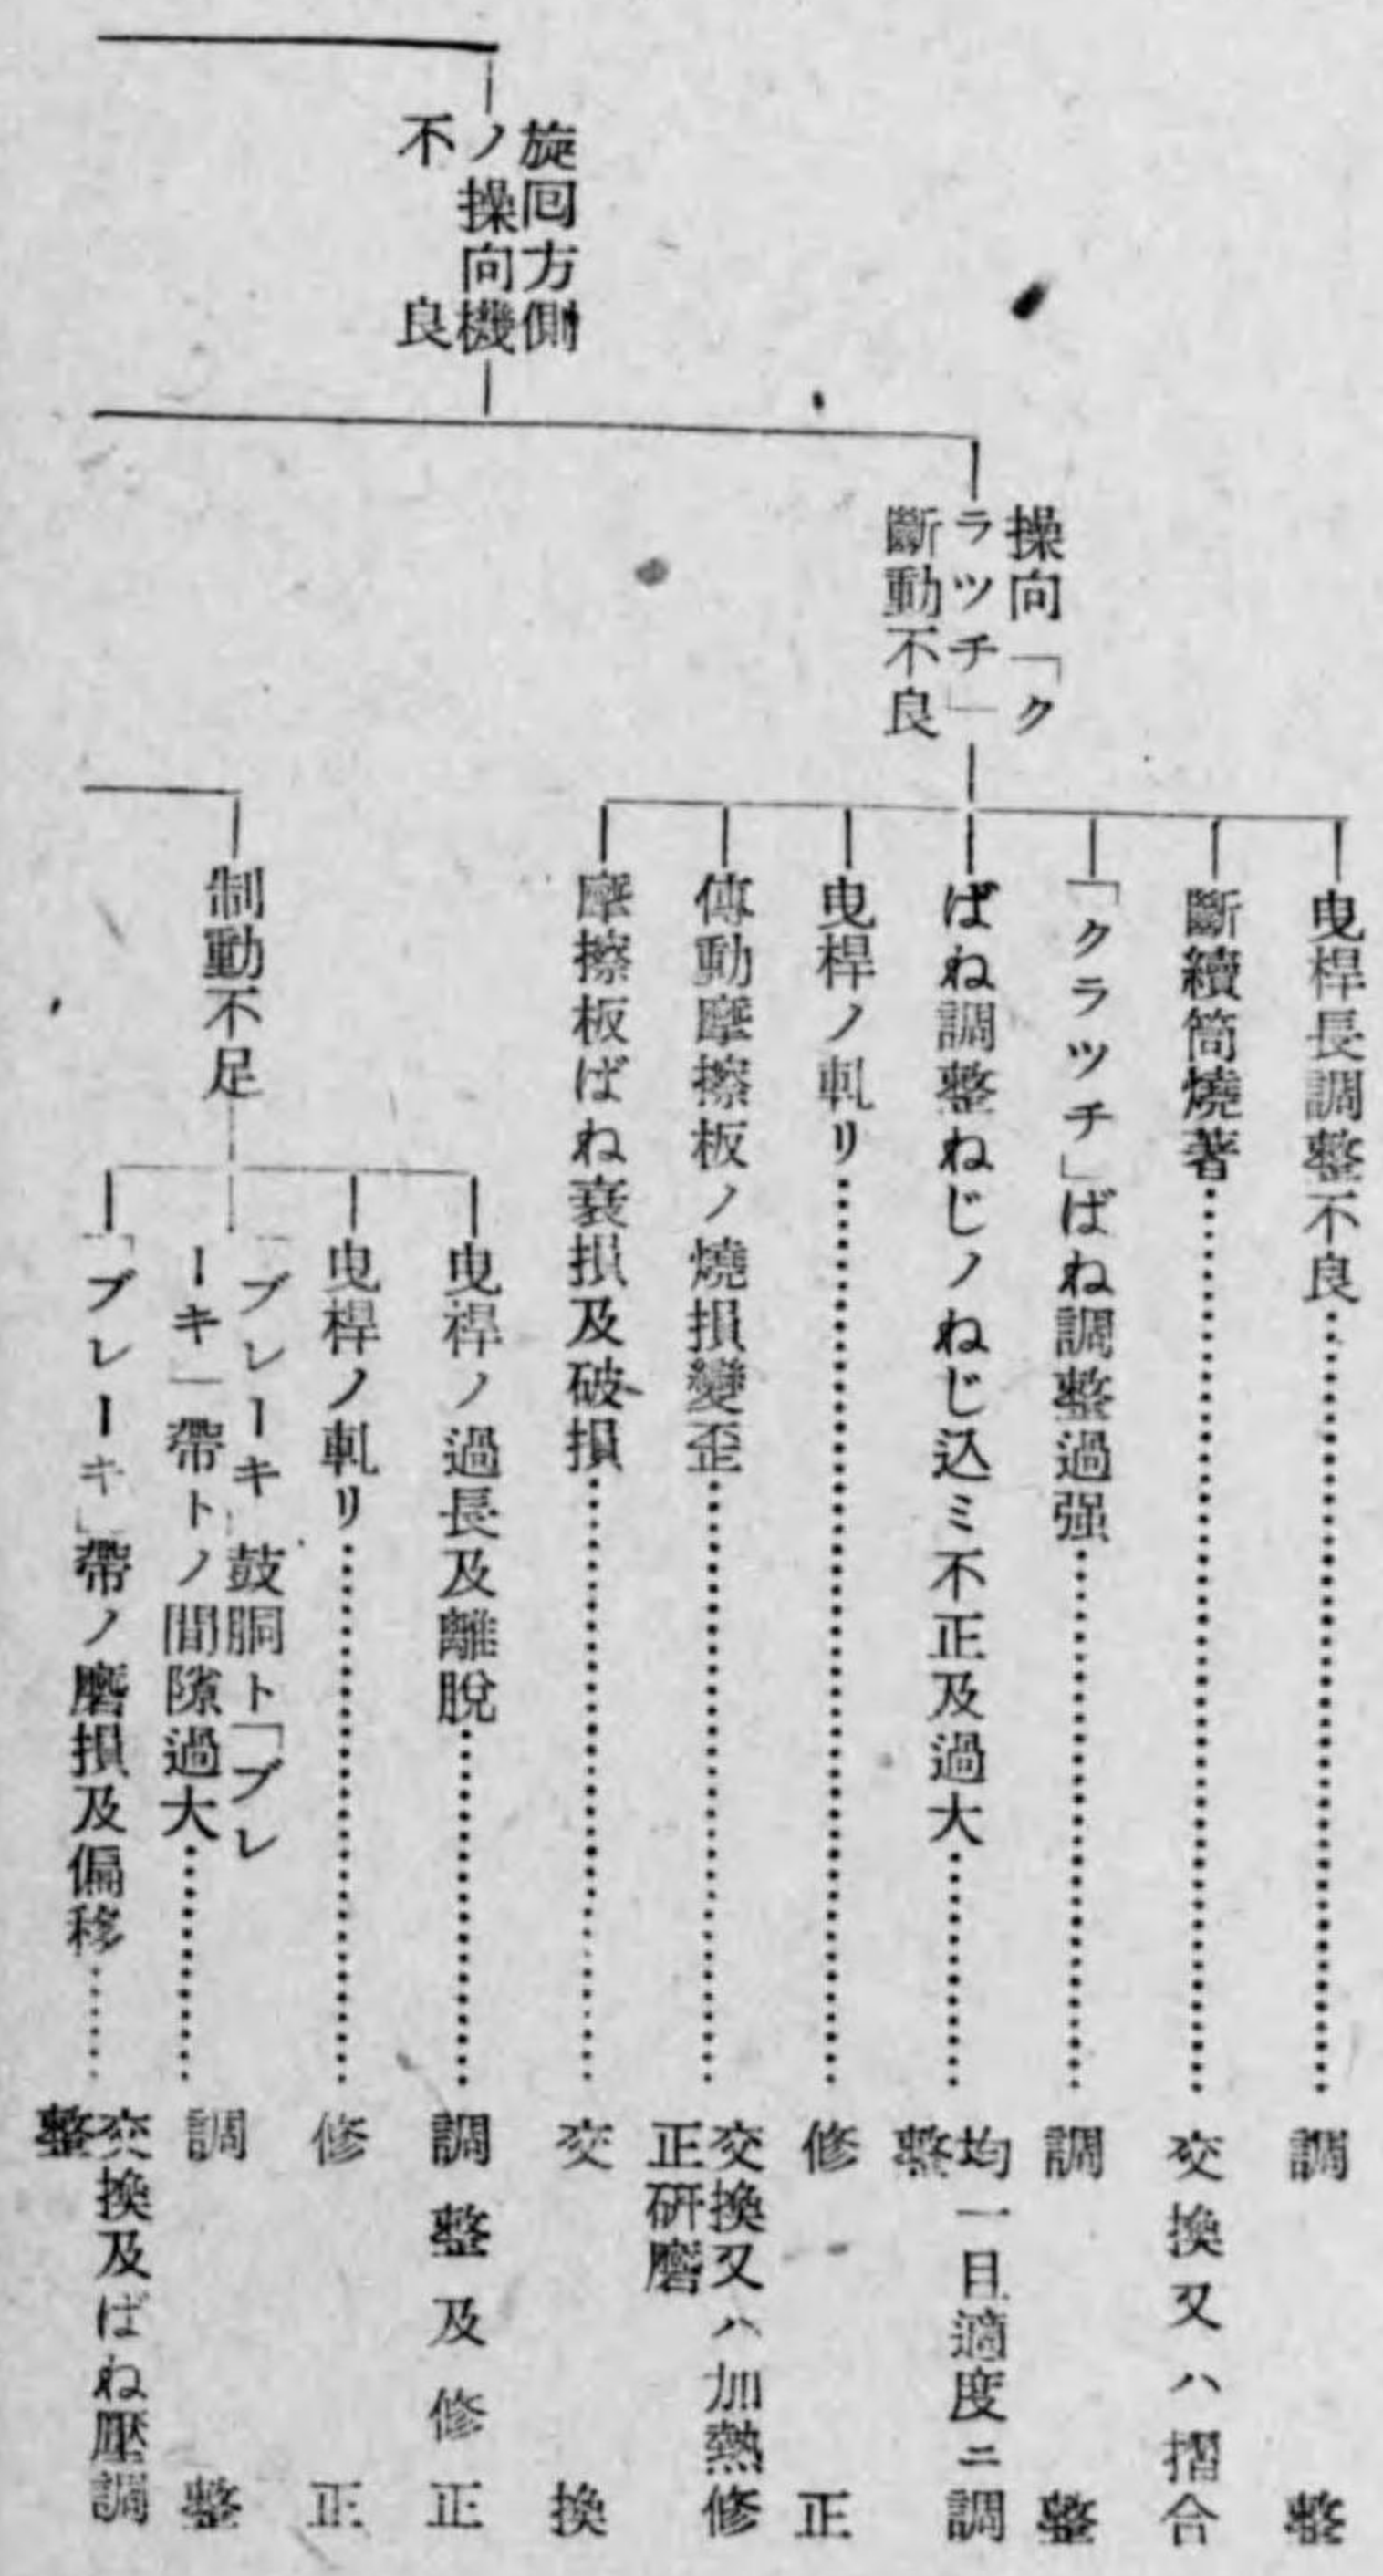 旋回方側
ノ操向機
不良
操向「ク
ラツチ」
斷動不良
曳桿長調整不良……調整
斷續筒燒著……交換又ハ摺合
「クラツチ」ばね調整過强……調整
ばね調整ねじノねじ込ミ不正及過大……均一且適度ニ調
整
曳桿ノ軋リ……修正
傳動摩擦板ノ燒損變歪……交換又ハ加熱修
正硏磨
摩擦板ばね衰損及破損……交換
制動不足
曳桿ノ過長及離脫……調整及修正
曳桿ノ軋リ……修正
「ブレーキ」鼓胴ト「ブレ
ーキ」帶トノ間隙過大……調整
「ブレーキ」帶ノ磨損及偏移……交換及ばね壓調
整